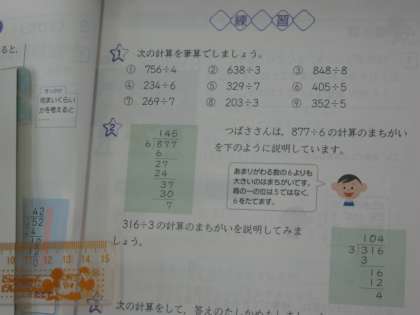 練習
1 次の計算を筆算でしましょう。
① 756÷4 ② 638÷3 ③ 848÷8
④ 234÷6 ⑤ 329÷7 ⑥ 405÷5
⑦ 269÷7 ⑧ 203÷3 ⑨ 352÷5
2 つばささんは、877÷6の計算のまちがい
を下のように説明しています。
145
6)877
6
27
24
37
30
7
あまりがわる数の6よりも
大きいのはまちがいです。
商の一の位は5ではなく、
6をたてます。
316÷3の計算のまちがいを説明してみま
しょう。
104
3)316
3
16
12
4
次の計算をして、答えのたしかめもしましょう
ると、
地まいくらい
かを考えると
42
252
10 11 12 13 14 15